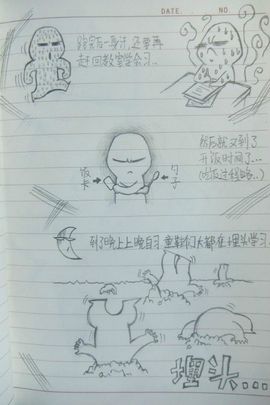 DATE NO.
跑完后一身汗,还要再
赶回教室学习..
然后就又到了
开饭时间了...
(吃饭过程略..)
饭卡
勺子
到了晚上上晚自习,童鞋们大都在埋头学习
埋头...